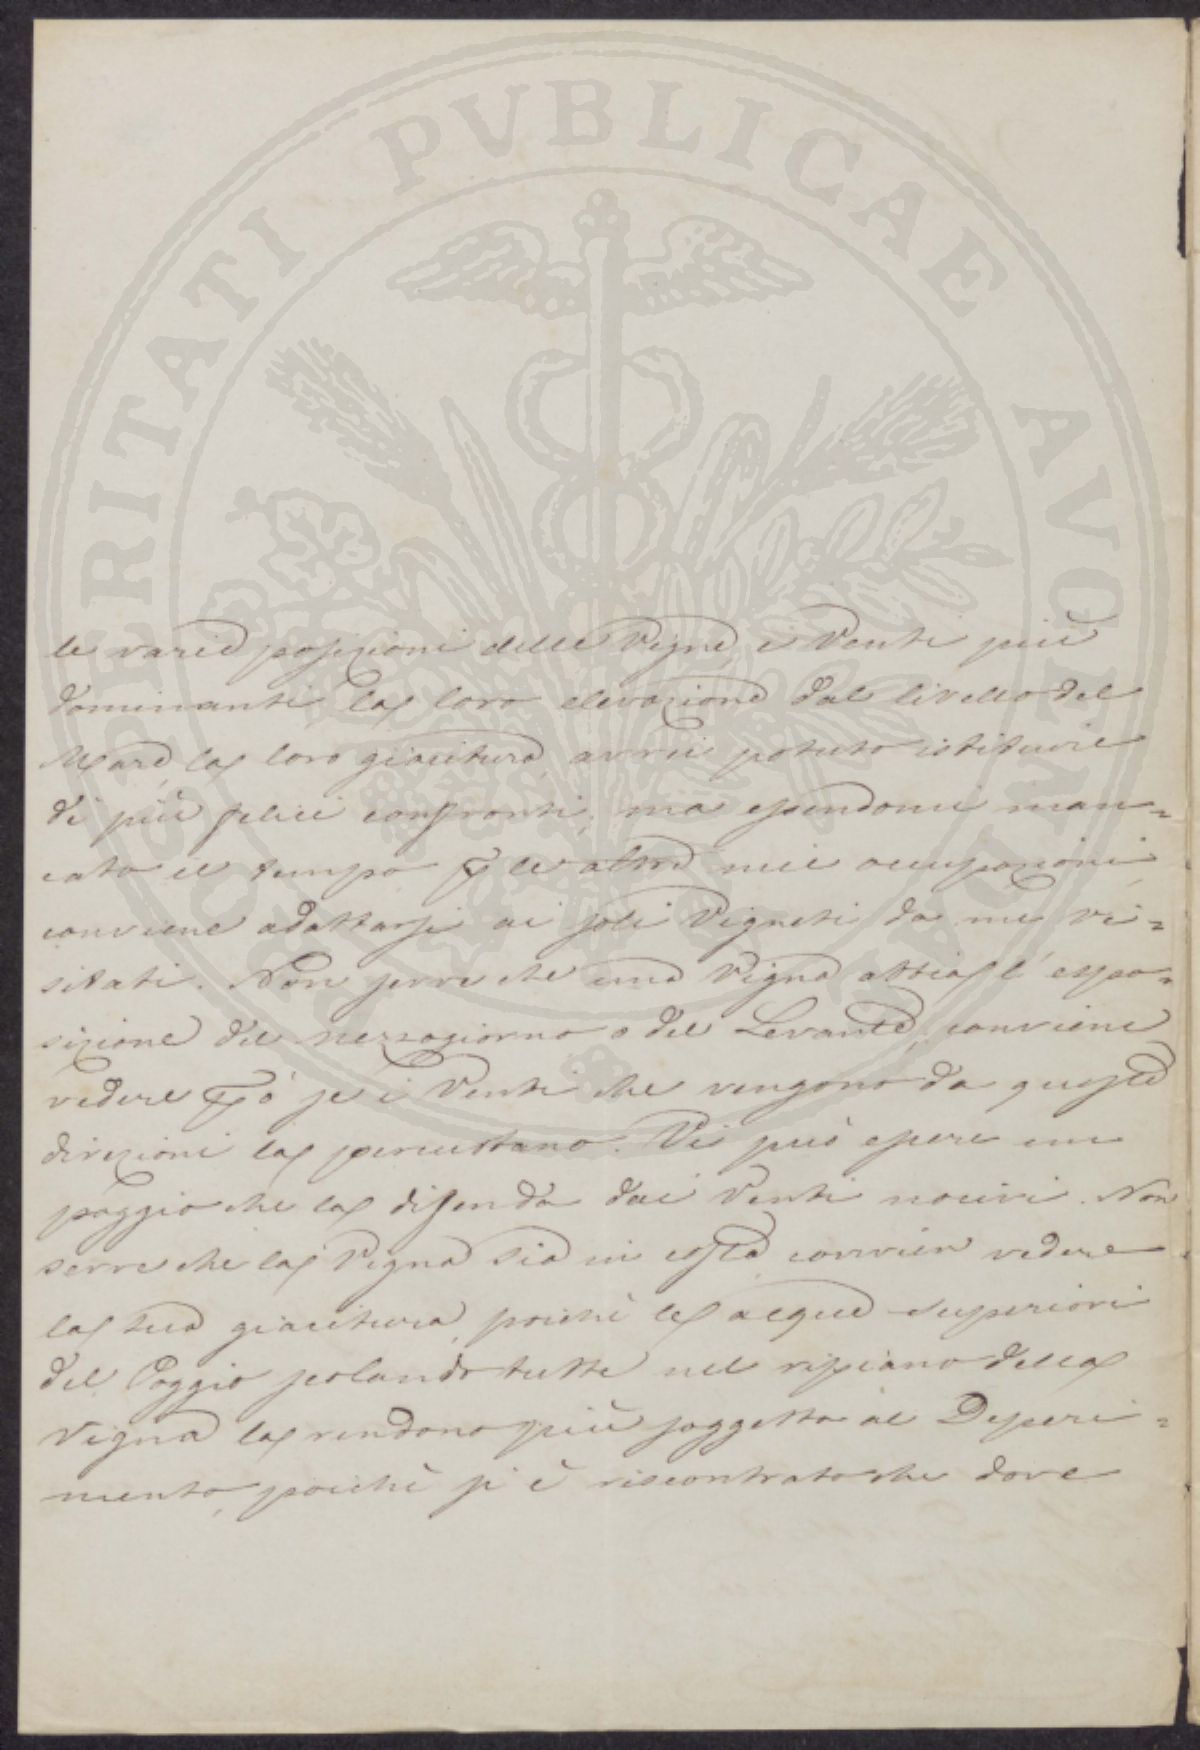 PROSPERITATI PVBLICAE AVGENDAE
le varie posizioni delle Vigne, i Venti più
dominanti, la loro elevazione dal livello del
Mare, la loro giacitura, avrei potuto istituire
di più felici confronti, ma essendomi man=
cato il tempo p le altre mie occupazioni,
conviene adattarsi ai soli Vigneti da me vi=
sitati. Non serve che una Vigna abbia l'espo=
sizione del mezzogiorno o del Levante, conviene
vedere pò se i Venti che vengono da queste
direzioni la percuotano. Vi può essere un
poggio che la difenda dai Venti nocivi. Non
serve che la Vigna sia in costa, convien vedere
la sua giacitura, poichè le acque superiori
del Poggio scolando tutte nel ripiano della
Vigna la rendono più soggetta al Deperi=
mento, poichè si è riscontrato che dove